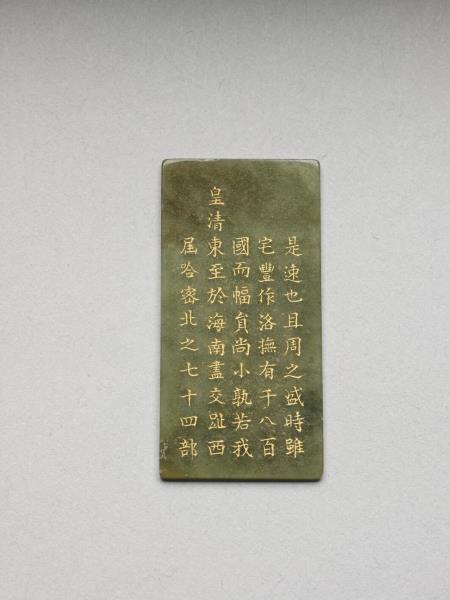 是速也且周之盛時雖
宅豐作洛撫有千八百
國而幅員尚小孰若我
皇清東至於海南盡交趾西
届哈密北之七十四部